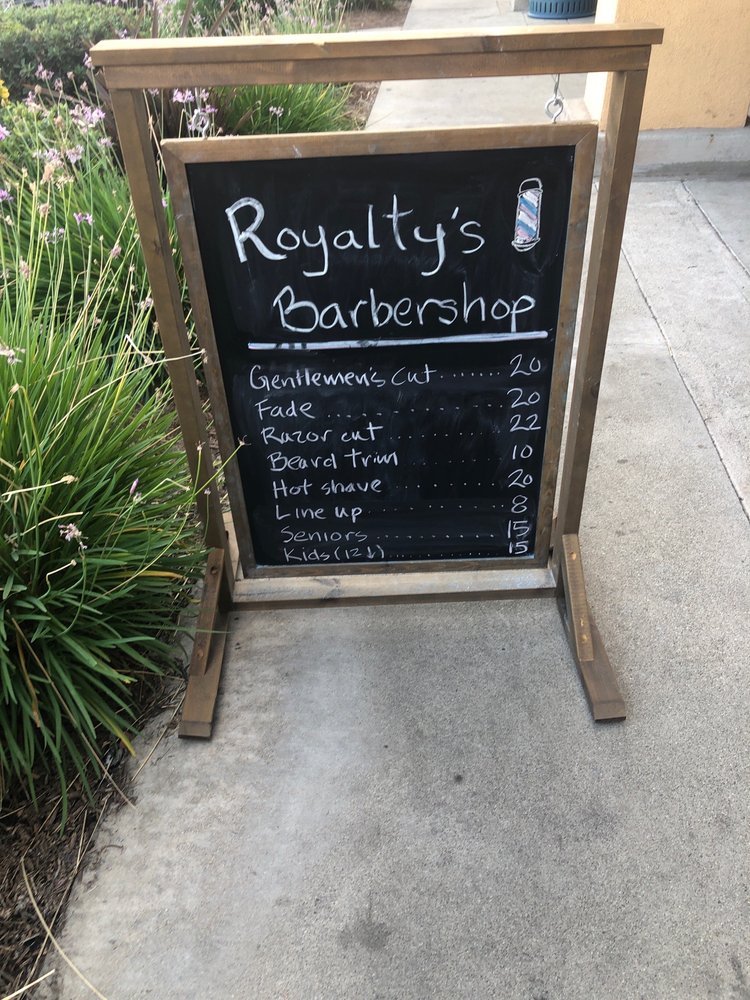 Royalty's
Barbershop
Gentlemen's cut ....... 20
Fade ................ 20
Razor cut ............ 22
Beard trim ........... 10
Hot shave ........... 20
Line up ............. 8
Seniors ............. 15
Kids (12↓) ............ 15